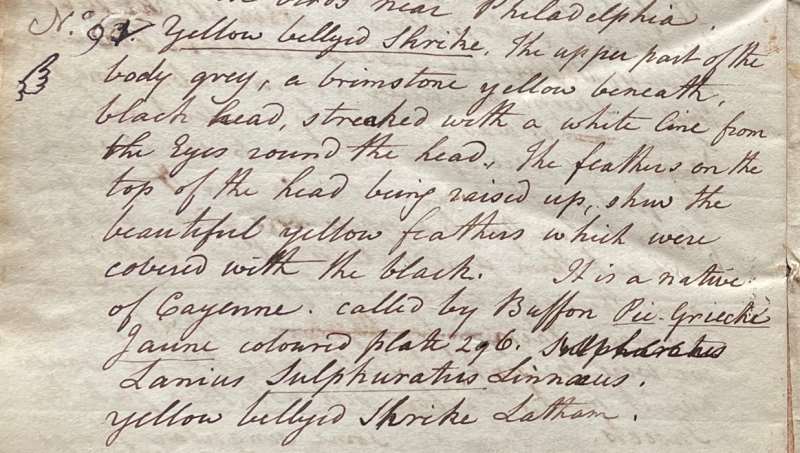 birds near Philadelphia.
No. 93. Yellow bellyed Shrike. The upper part of the
body grey, a brimstone yellow beneath,
black head, streaked with a white line from
the Eyes round the head. The feathers on the
top of the head being raised up, shew the
beautiful yellow feathers which were
covered with the black. It is a native
of Cayenne. called by Buffon Pie-Grieche
Jaune coloured plate 296.
Lanius Sulphuratus Linnaeus.
yellow bellyed Shrike Latham.